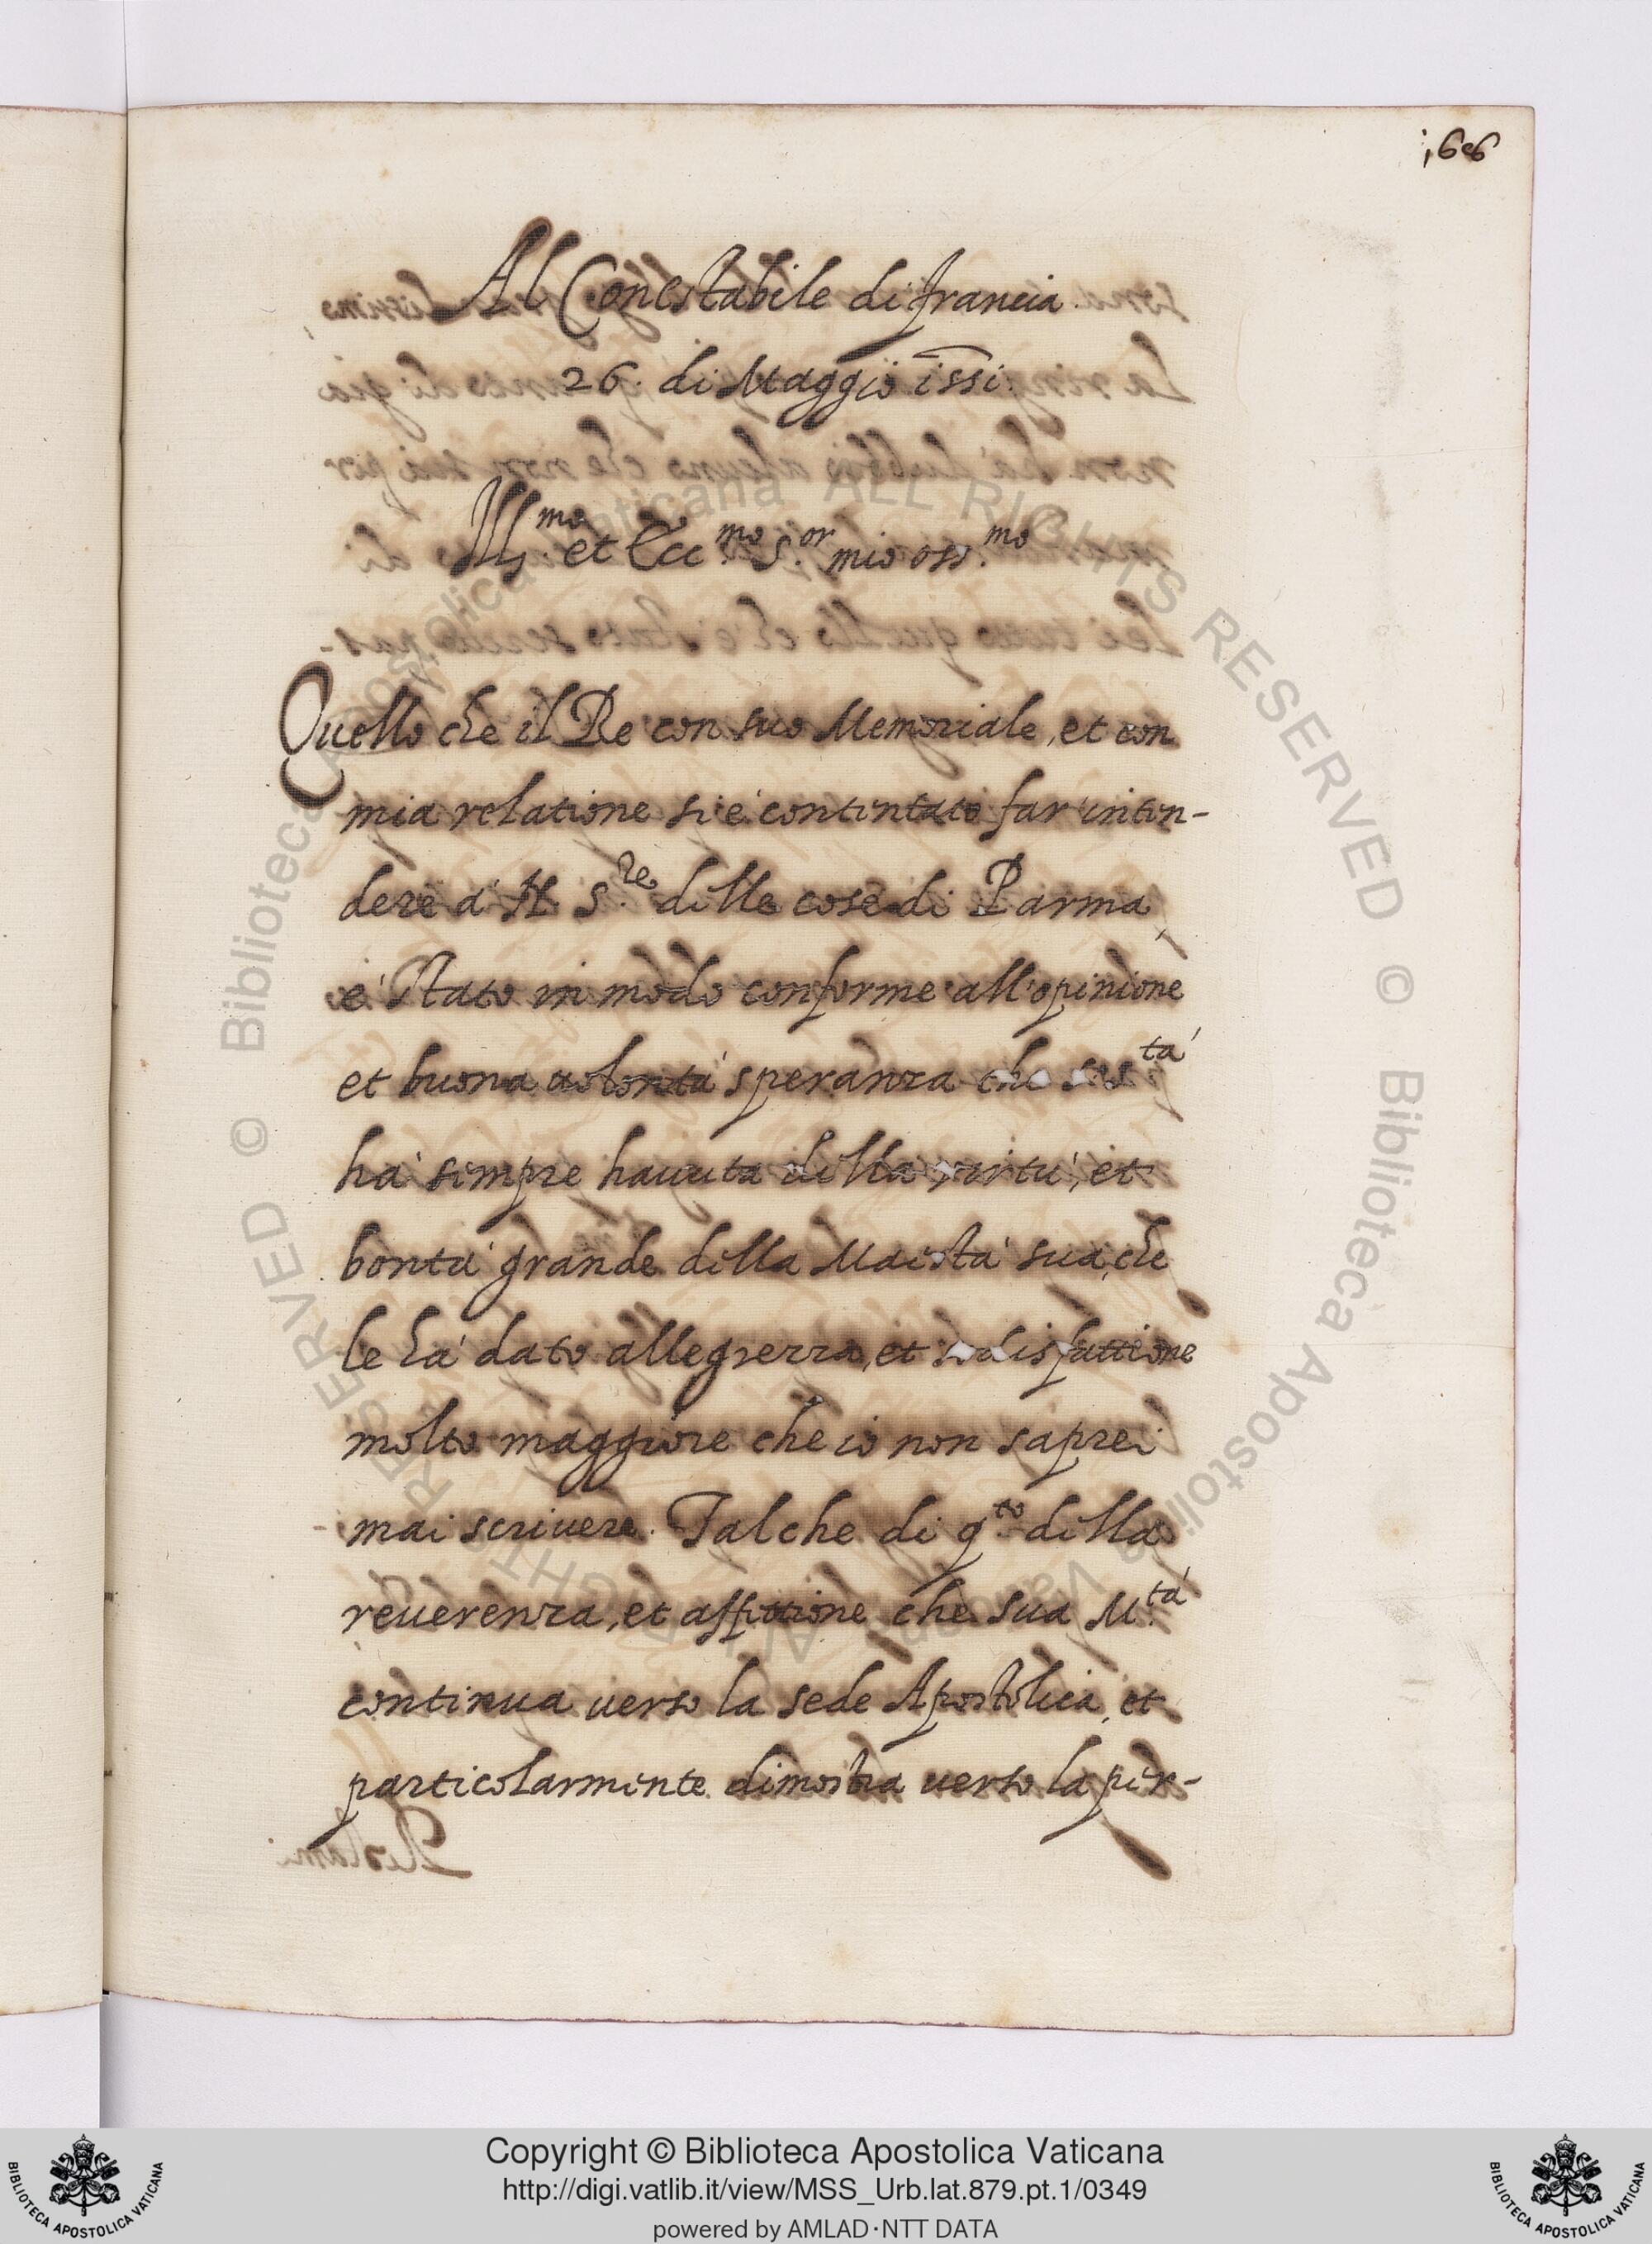 166
Al Conestabile di francia
26. di Maggio 1551.
Ill.mo et Ecc.mo S.or mio oss.mo
Quello che il Re con suo Memoriale, et con
mia relatione si è contentato far inten-
dere à N. S.re delle cose di Parma,
è stato in modo conforme all'opinione
et buona uolontà speranza che S. S.tà
hà sempre hauuta della virtù, et
bontà grande della Maestà sua, che
le hà dato allegrezza, et sodisfattione
molto maggiore che io non saprei
mai scriuere. Talche di q.to della
reuerenza, et affettione che sua M.tà
continua uerso la sede Apostolica, et
particolarmente dimostra uerso la per-
© Biblioteca Apostolica Vaticana ALL RIGHTS RESERVED © Biblioteca Apostolica Vaticana ALL RIGHTS RESERVED
Copyright © Biblioteca Apostolica Vaticana
http://digi.vatlib.it/view/MSS_Urb.lat.879.pt.1/0349
powered by AMLAD·NTT DATA
BIBLIOTECA APOSTOLICA VATICANA
BIBLIOTECA APOSTOLICA VATICANA